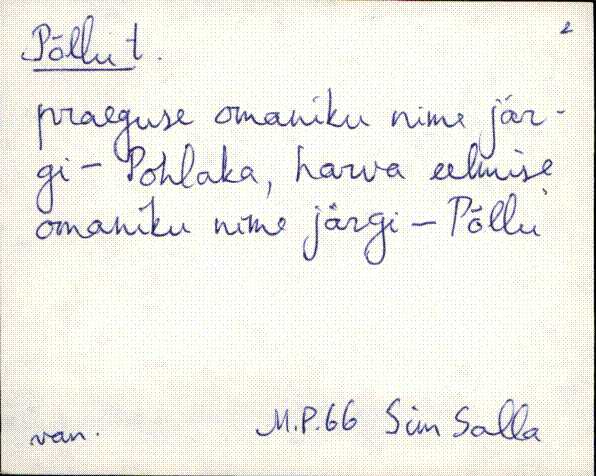 Põllu t. 2
praeguse omaniku nime jär-
gi - Pohlaka, harva eelmise
omaniku nime järgi - Põllu
van. M.P.66 Sim Salla